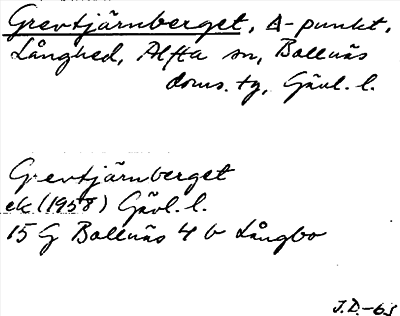 Grevtjärnberget, Δ-punkt,
Långhed, Alfta sn, Bollnäs
doms. tg, Gävl. l.
Grevtjärnberget
ek (1958) Gävl. l.
15 G Bollnäs 4 b Långbo
J.D.-63